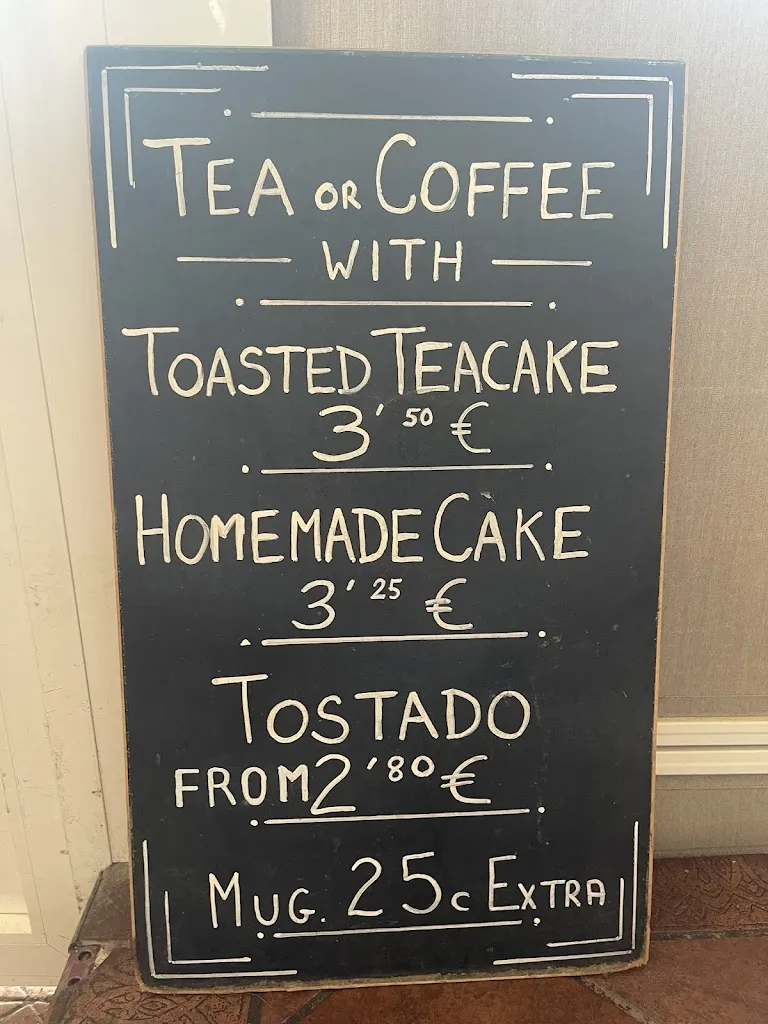 TEA OR COFFEE
WITH
TOASTED TEACAKE
3'50 €
HOMEMADE CAKE
3'25 €
TOSTADO
FROM 2'80 €
MUG. 25c EXTRA